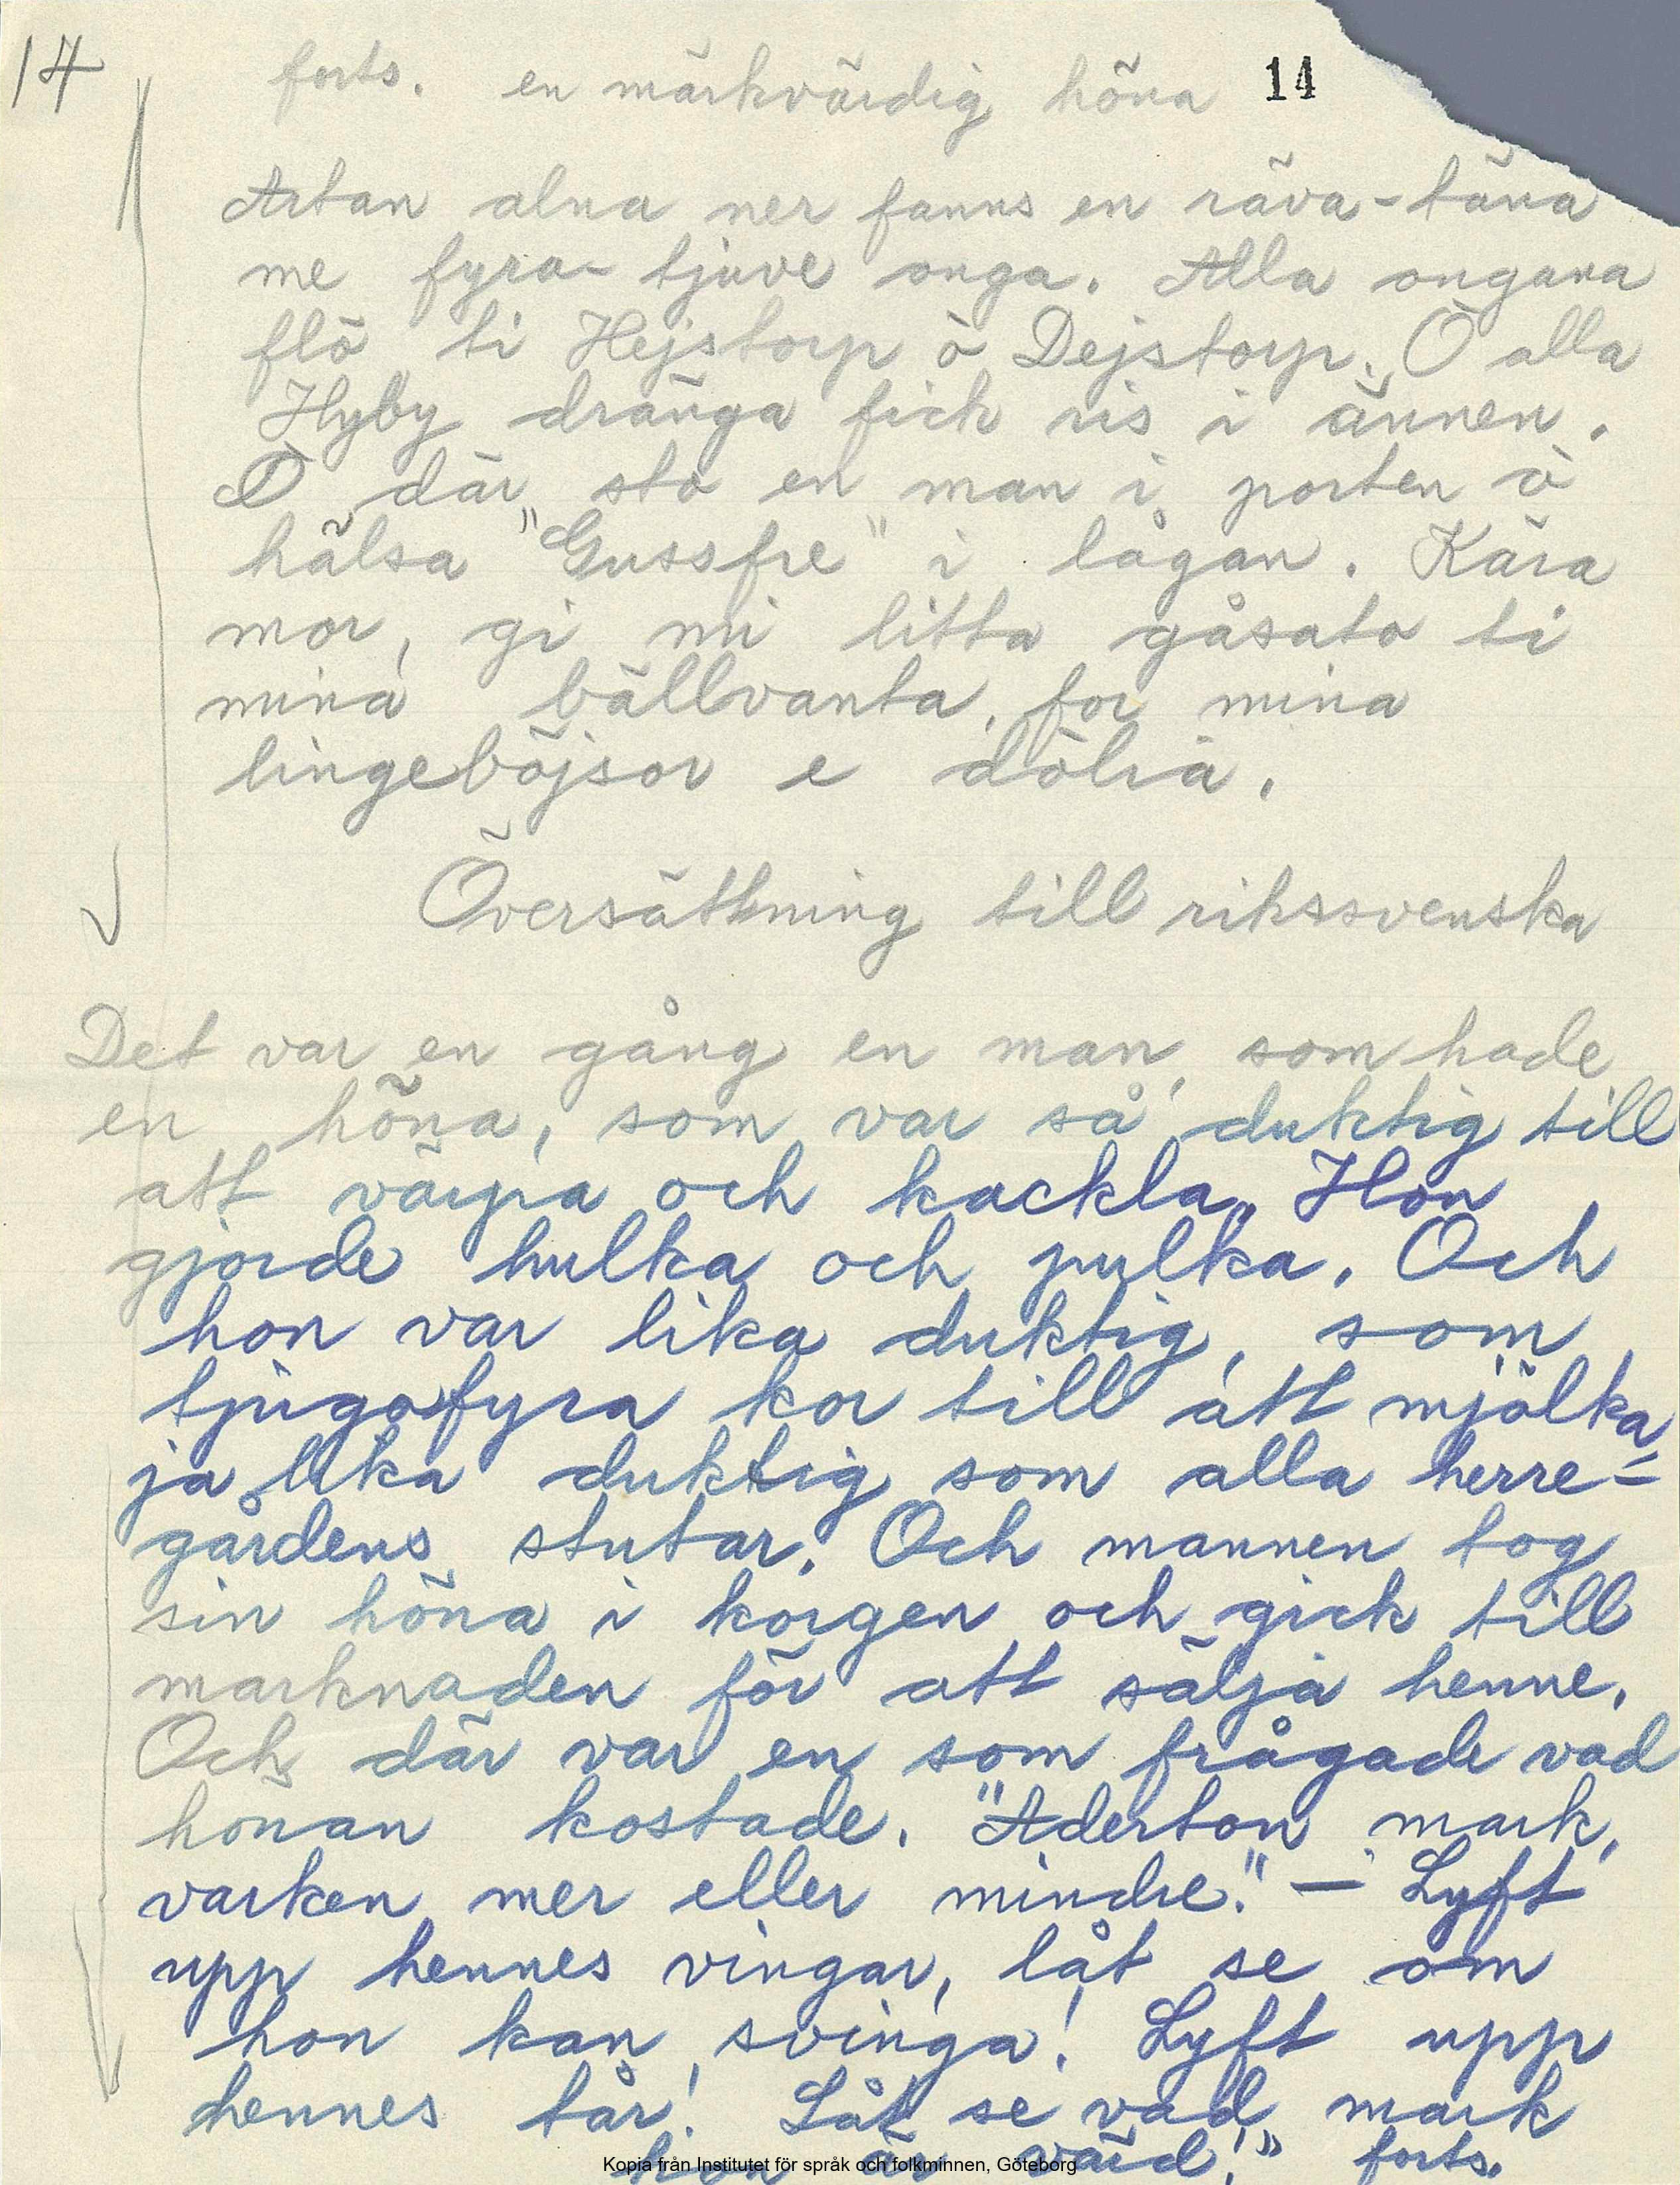 14
forts. en märkvärdig höna 14
Artan alna ner fanns en räva-täva
me fyra-tjuve onga. Alla ongana
flö ti Hejstorp ò Dejstorp. Ò alla
Hyby dränga fick ris i ännen.
Ò där sto en man i porten ò
hälsa "Gussfre" i lågan. Kära
mor, gi mi litta gåsato ti
mina bällvanta, for mina
lingeböjsor e dölia.
Översättning till rikssvenska
Det var en gång en man, som hade
en höna, som var så duktig till
att värpa och kackla. Hon
gjorde hulka och pulka. Och
hon var lika duktig, som
tjugofyra kor till att mjölka,
ja lika duktig som alla herre-
gårdens stutar. Och mannen tog
sin höna i korgen och gick till
marknaden för att sälja henne.
Och där var en som frågade vad
hönan kostade. "Aderton mark,
varken mer eller mindre." – Lyft
upp hennes vingar, låt se om
hon kan svinga! Lyft upp
hennes tår! Låt se vad mark
hon är värd!" forts.
Kopia från Institutet för språk och folkminnen, Göteborg